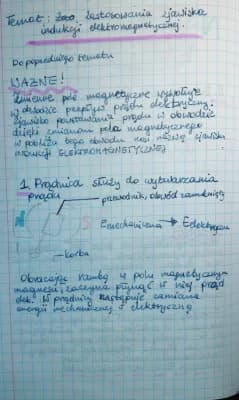 Temat: Zastosowania zjawiska
indukcji elektromagnetycznej.
Do poprzedniego tematu
WAŻNE!
Zmienne pole magnetyczne wywołuje
w obwodzie przepływ prądu elektrycznego.
Zjawisko powstawania prądu w obwodzie
dzięki zmianom pola magnetycznego
w pobliżu tego obwodu nosi nazwę zjawiska
INDUKCJI ELEKTROMAGNETYCZNEJ
1. Prądnica służy do wytwarzania
prądu
przewodnik, obwód zamknięty
S
Emechaniczna → Eelektryczna
korba
Obracając ramką w polu magnetycznym
magnesu, zaczyna płynąć w niej prąd
elek. W prądnicy następuje zamiana
energii mechanicznej w elektryczną